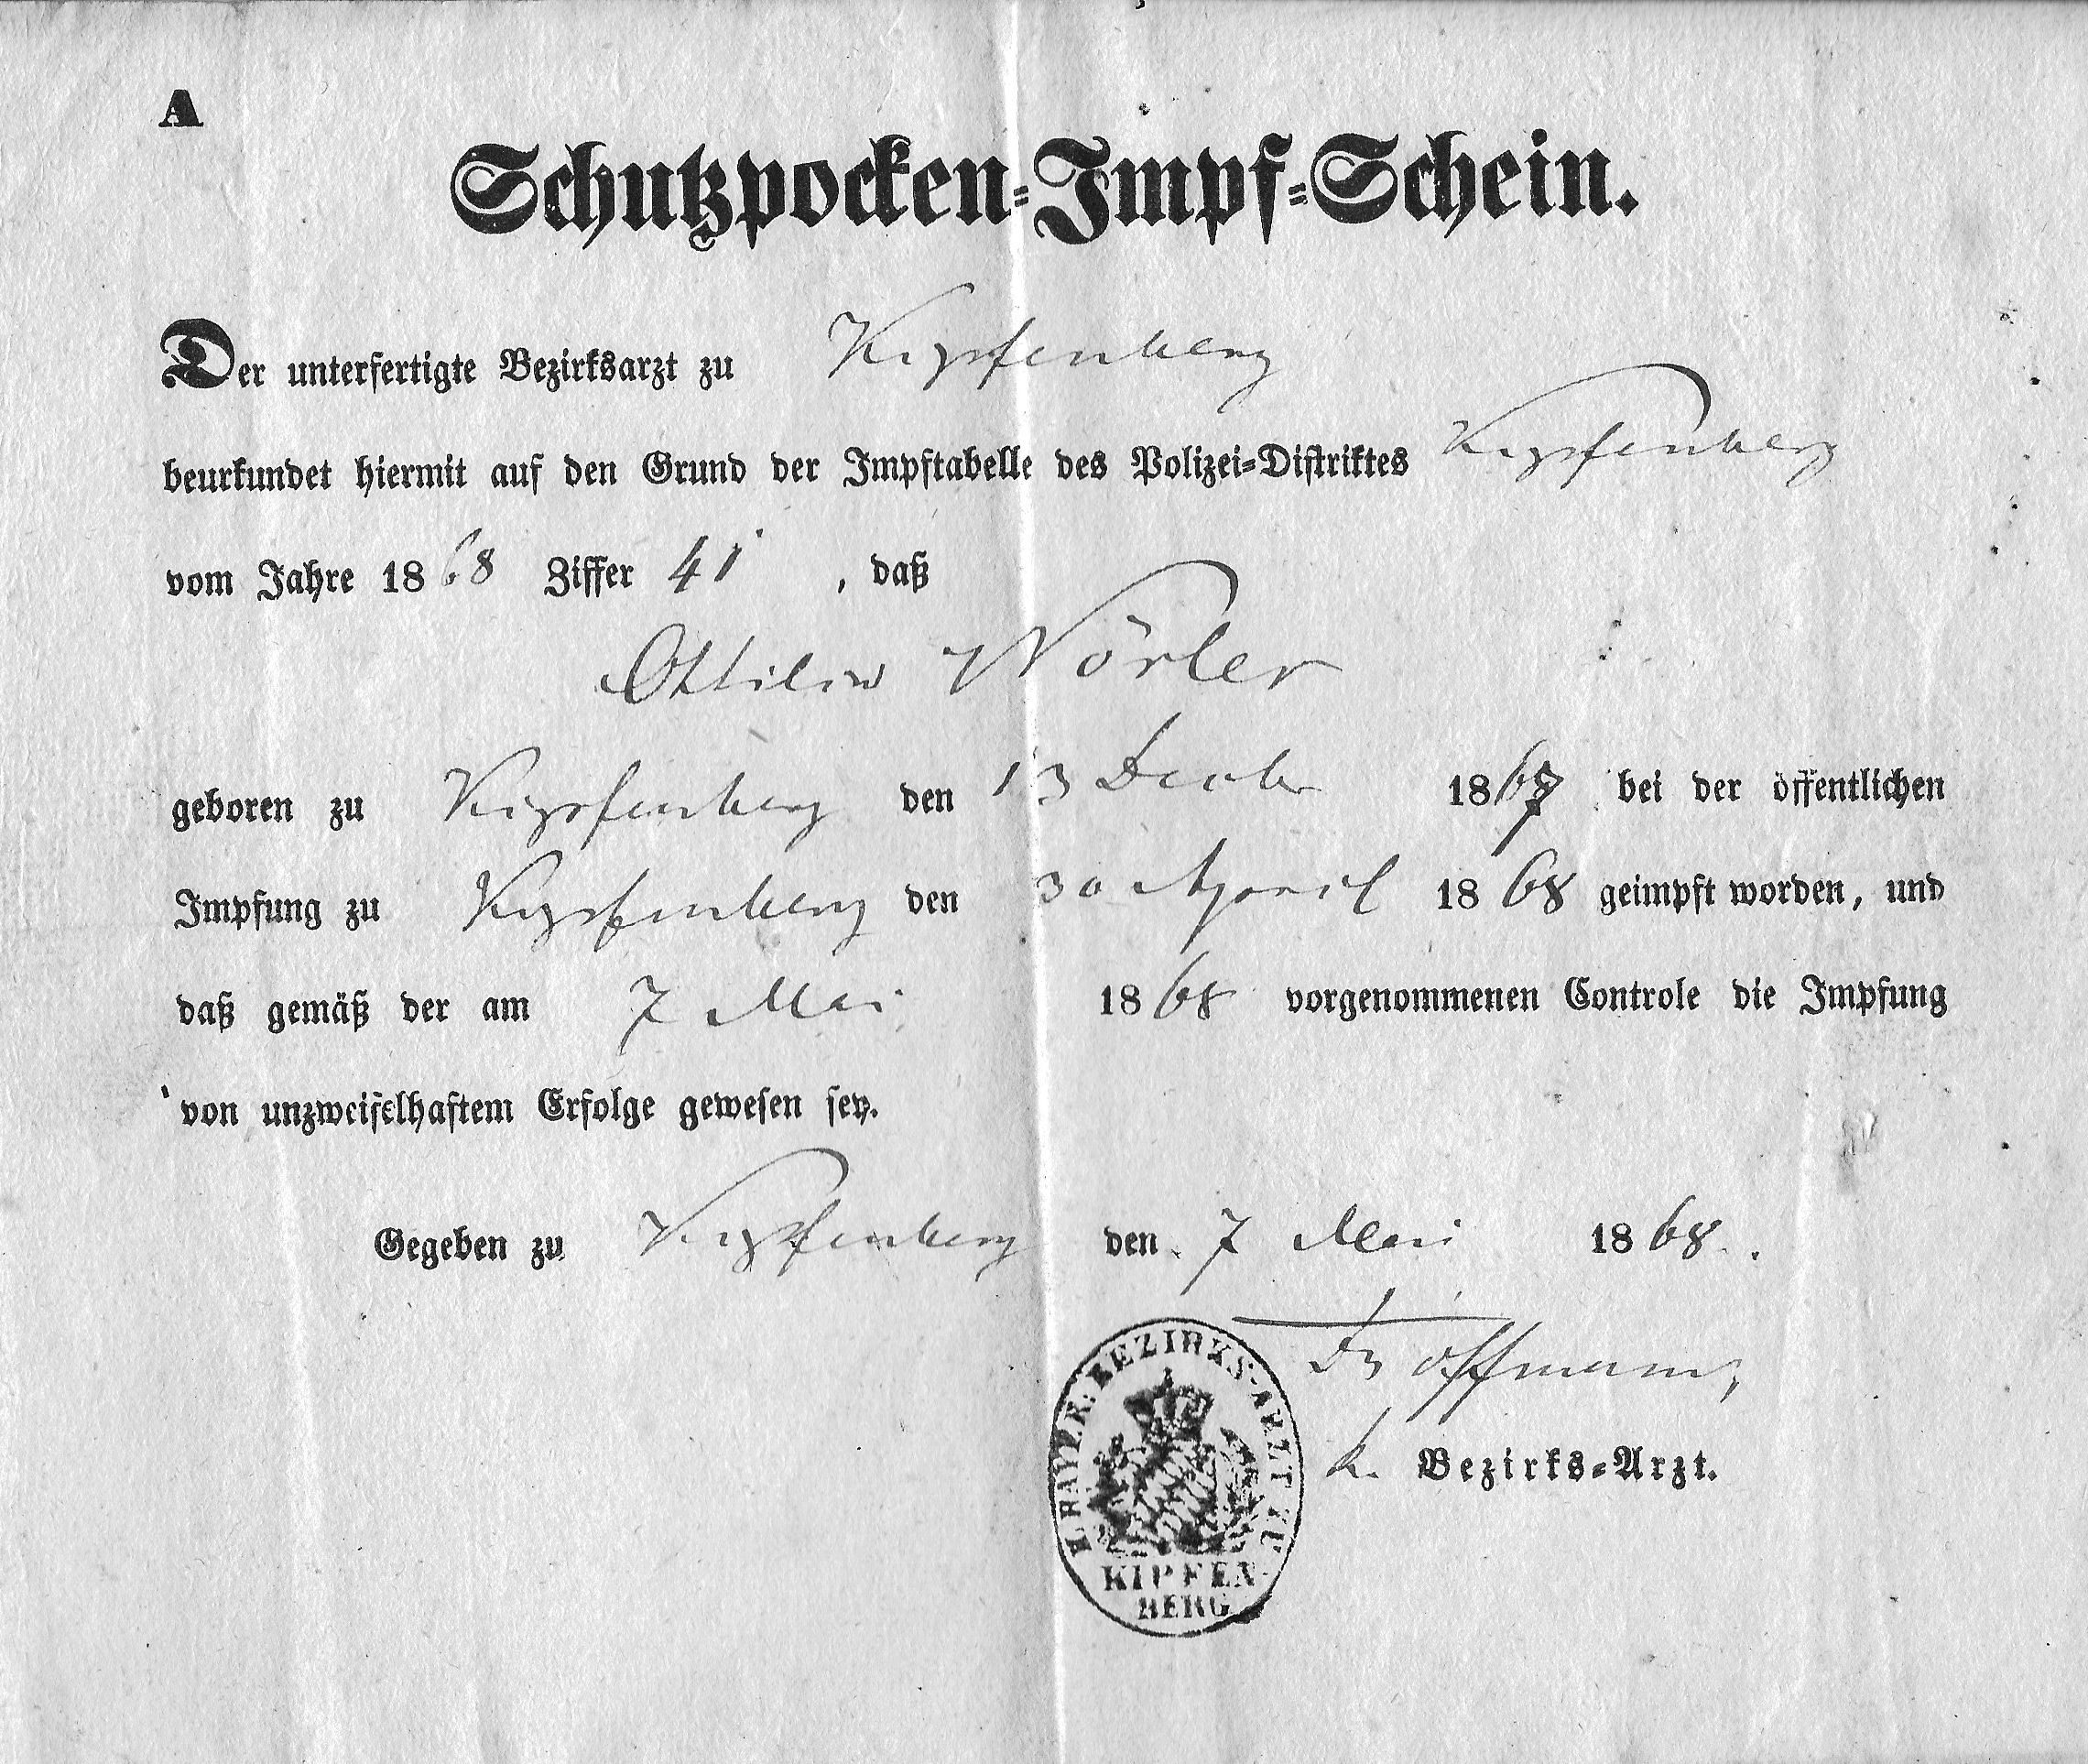 A
Schutzpocken-Impf-Schein.
Der unterfertigte Bezirksarzt zu Kipfenberg
beurkundet hiermit auf den Grund der Impftabelle des Polizei-Distriktes Kipfenberg
vom Jahre 1868 Ziffer 41, daß
Ottilie Wörler
geboren zu Kipfenberg den 13 1867 bei der öffentlichen
Impfung zu Kipfenberg den 30 April 1868 geimpft worden, und
daß gemäß der am 7 Mai 1868 vorgenommenen Controle die Impfung
von unzweifelhaftem Erfolge gewesen sey.
Gegeben zu Kipfenberg den 7 Mai 1868.
K. BAYER. BEZIRKS-ARZT ZU
KIPFEN-
BERG
k. Bezirks-Arzt.